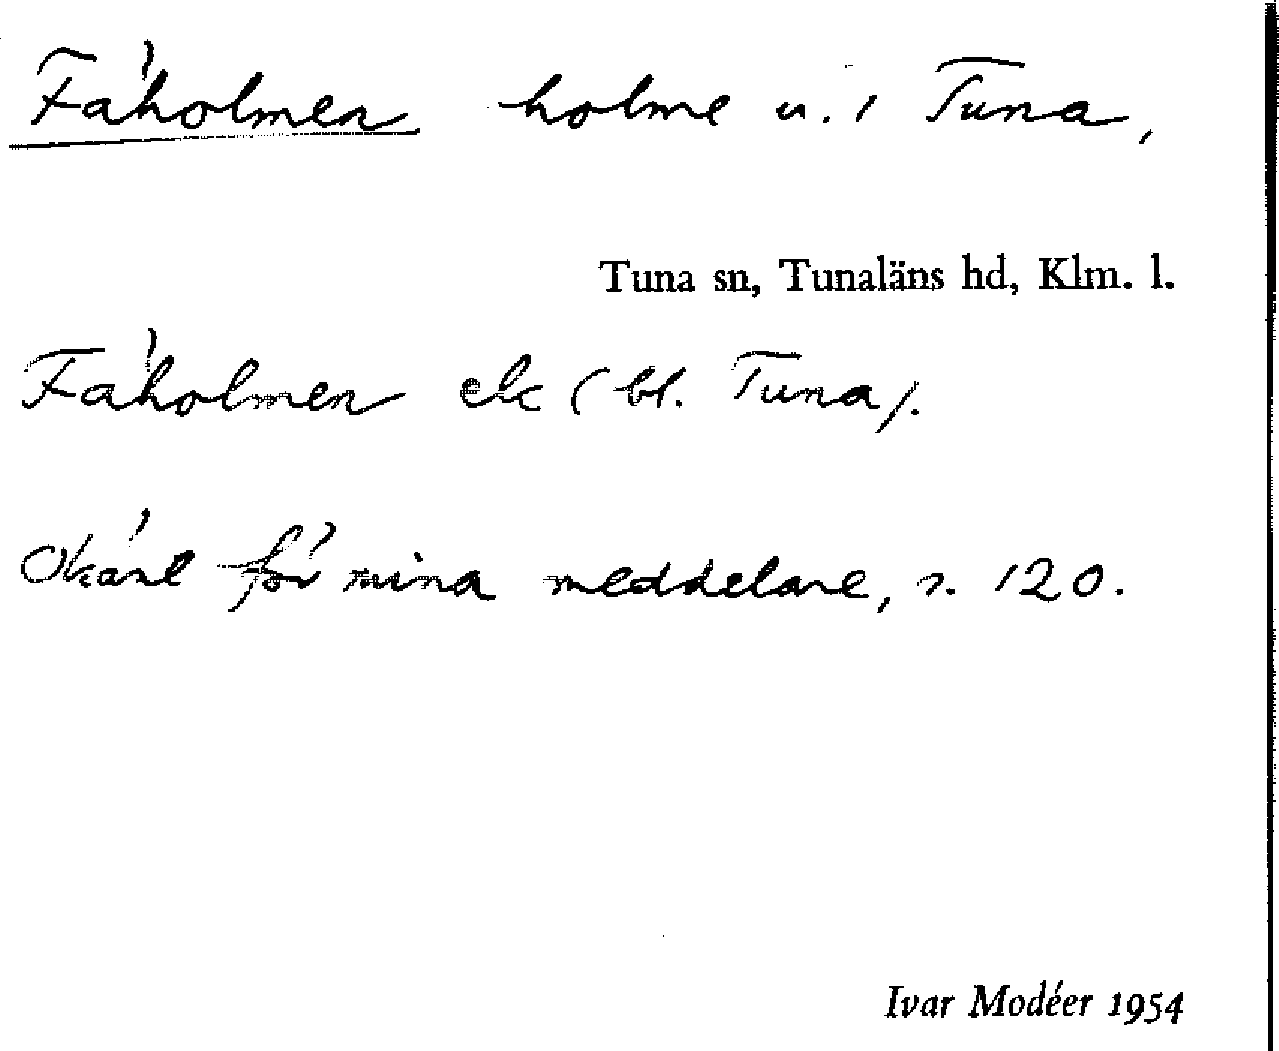 Fåholmen holme u. i Tuna,
Tuna sn, Tunaläns hd, Klm. l.
Fåholmen ek (bl. Tuna).
Okänt för mina meddelare, s. 120.
Ivar Modéer 1954